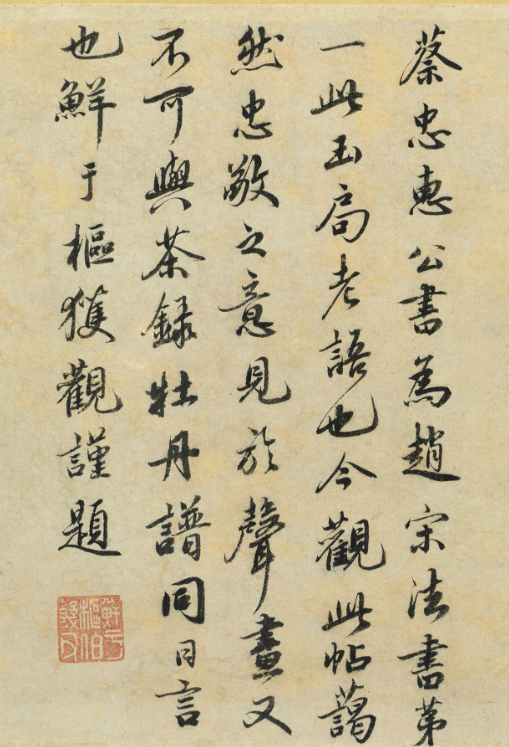 蔡忠惠公書為趙宋法書第
一此玉局老語也今觀此帖藹
然忠敬之意見於聲畫又
不可與茶錄牡丹譜同日言
也鮮于樞獲觀謹題
鮮于
樞伯
幾父